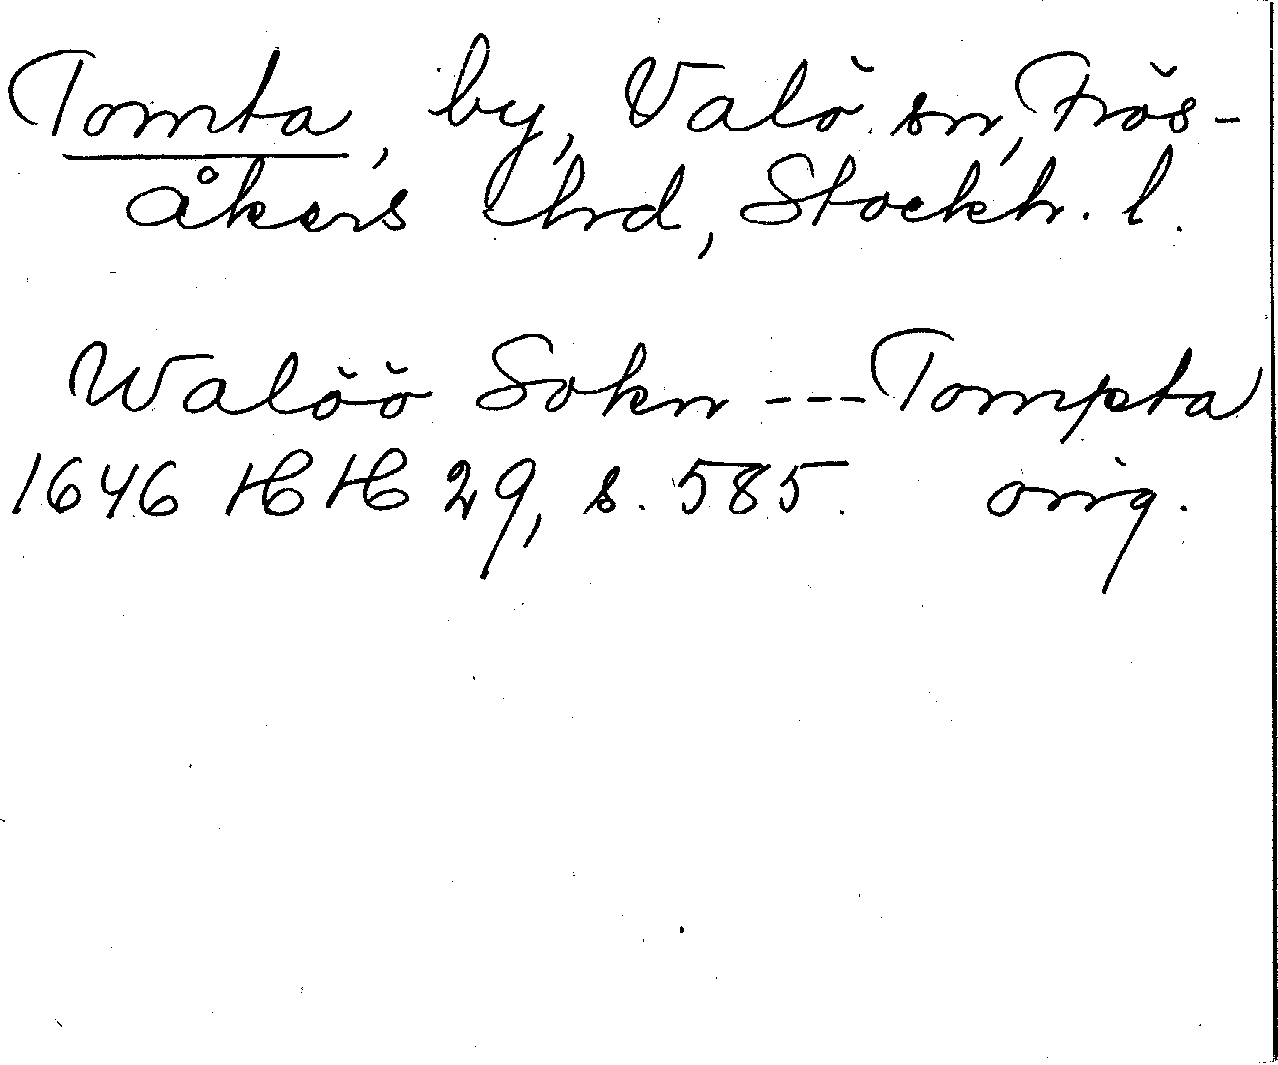 Tomta, by, Valö sn, Frös-
åkers hd, Stockh. l.
Walöö Sokn --- Tompta
1646 HH 29, s. 585. orig.